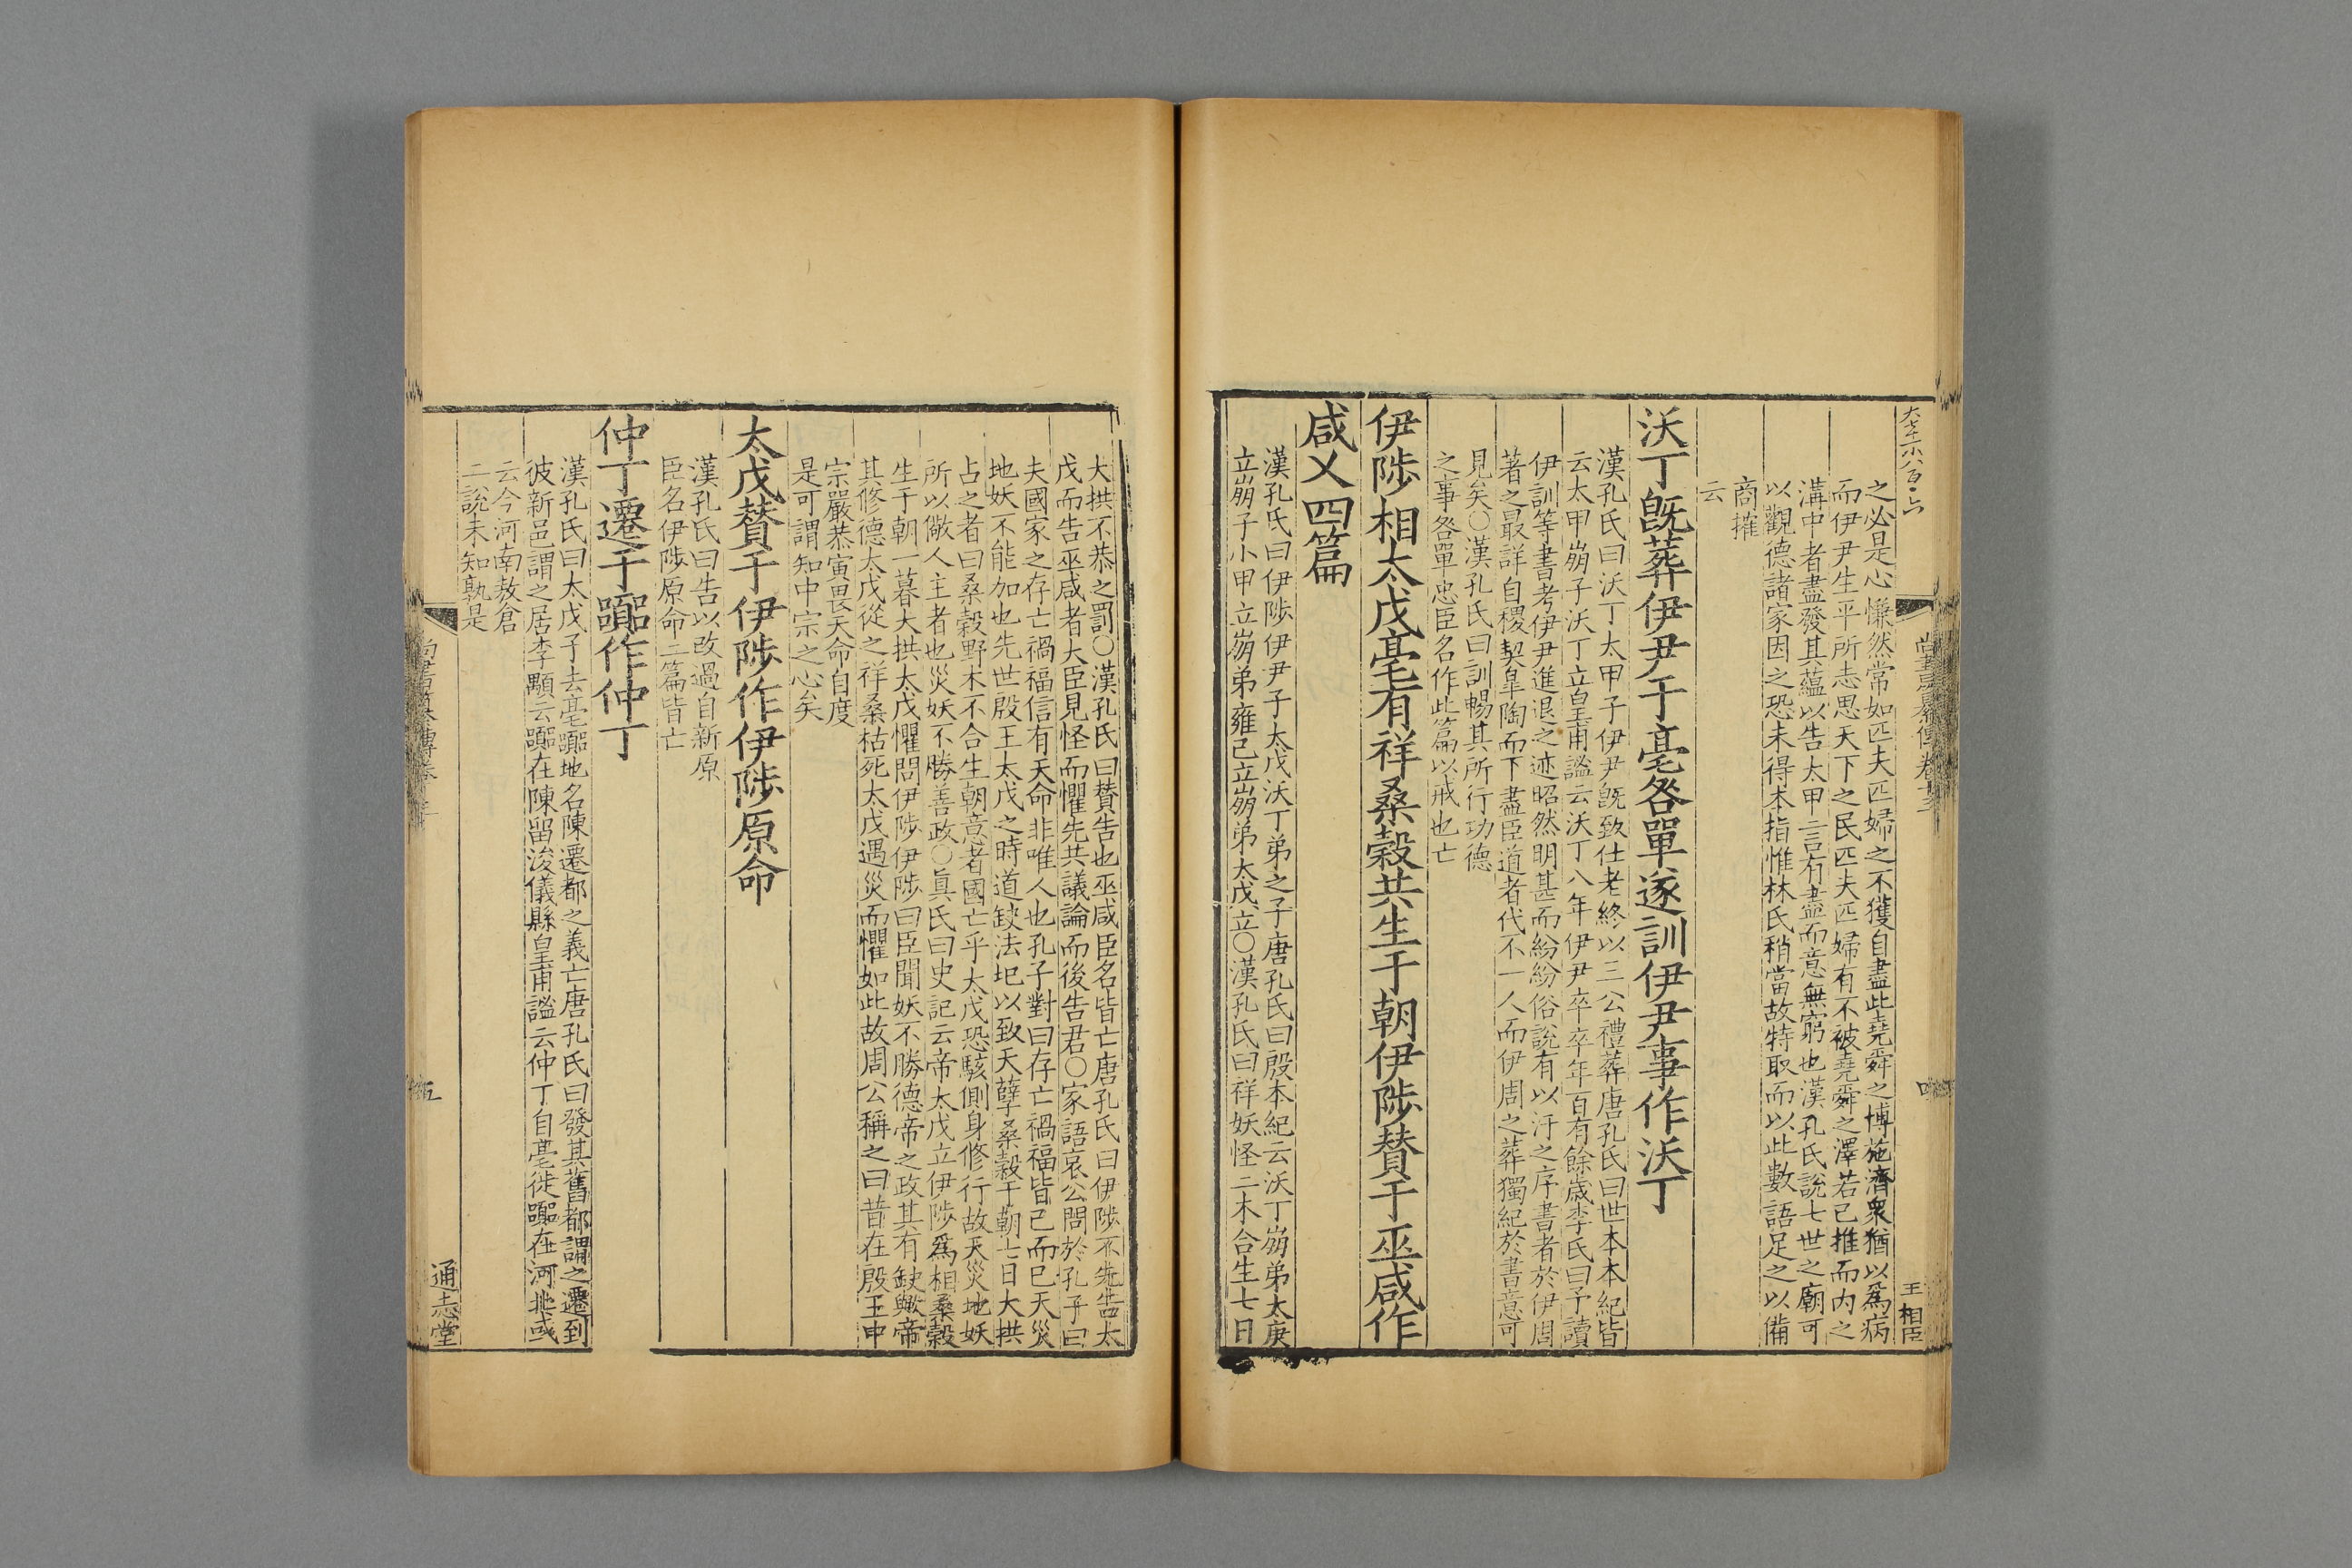 之必是心慊然常如匹夫匹婦之不獲自盡此堯舜之博施濟衆猶以爲病
而伊尹生平所志思天下之民匹夫匹婦有不被堯舜之澤若己推而內之
溝中者盡發其蘊以告太甲二言有盡而意無窮也漢孔氏說七世之廟可
以觀德諸家因之恐未得本指惟林氏稍當故特取而以此數語足之以備
商搉
云
沃丁旣葬伊尹于亳咎單遂訓伊尹事作沃丁
漢孔氏曰沃丁太甲子伊尹旣致仕老終以三公禮葬唐孔氏曰世本本紀皆
云太甲崩子沃丁立皇甫謐云沃丁八年伊尹卒卒年百有餘歲李氏曰予讀
伊訓等書考伊尹進退之迹昭然明甚而紛紛俗說有以汙之序書者於伊周
著之最詳自稷契臯陶而下盡臣道者代不一人而伊周之葬獨紀於書意可
見矣○漢孔氏曰訓暢其所行功德
之事咎單忠臣名作此篇以戒也亡
伊陟相太戊亳有祥桑榖共生于朝伊陟贊于巫咸作
咸乂四篇
漢孔氏曰伊陟伊尹子太戊沃丁弟之子唐孔氏曰殷本紀云沃丁崩弟太庚
立崩子小甲立崩弟雍己立崩弟太戊立○漢孔氏曰祥妖怪二木合生七日
大拱不恭之罰○漢孔氏曰贊告也巫咸臣名皆亡唐孔氏曰伊陟不先告太
戊而告巫咸者大臣見怪而懼先共議論而後告君○家語哀公問於孔子曰
夫國家之存亡禍福信有天命非唯人也孔子對曰存亡禍福皆己而已天災
地妖不能加也先世殷王太戊之時道缺法圮以致天孽桑榖于朝七日大拱
占之者曰桑榖野木不合生朝意者國亡乎太戊恐駭側身修行故天災地妖
所以儆人主者也災妖不勝善政○眞氏曰史記云帝太戊立伊陟爲相桑榖
生于朝一暮大拱太戊懼問伊陟伊陟曰臣聞妖不勝德帝之政其有缺歟帝
其修德太戊從之祥桑枯死太戊遇災而懼如此故周公稱之曰昔在殷王中
宗嚴恭寅畏天命自度
是可謂知中宗之心矣
太戊贊于伊陟作伊陟原命
漢孔氏曰告以改過自新原
臣名伊陟原命二篇皆亡
仲丁遷于囂作仲丁
漢孔氏曰太戊子去亳囂地名陳遷都之義亡唐孔氏曰發其舊都謂之遷到
彼新邑謂之居李顒云囂在陳留浚儀縣皇甫謐云仲丁自亳徙囂在河北或
云今河南敖倉
二說未知孰是
通志堂